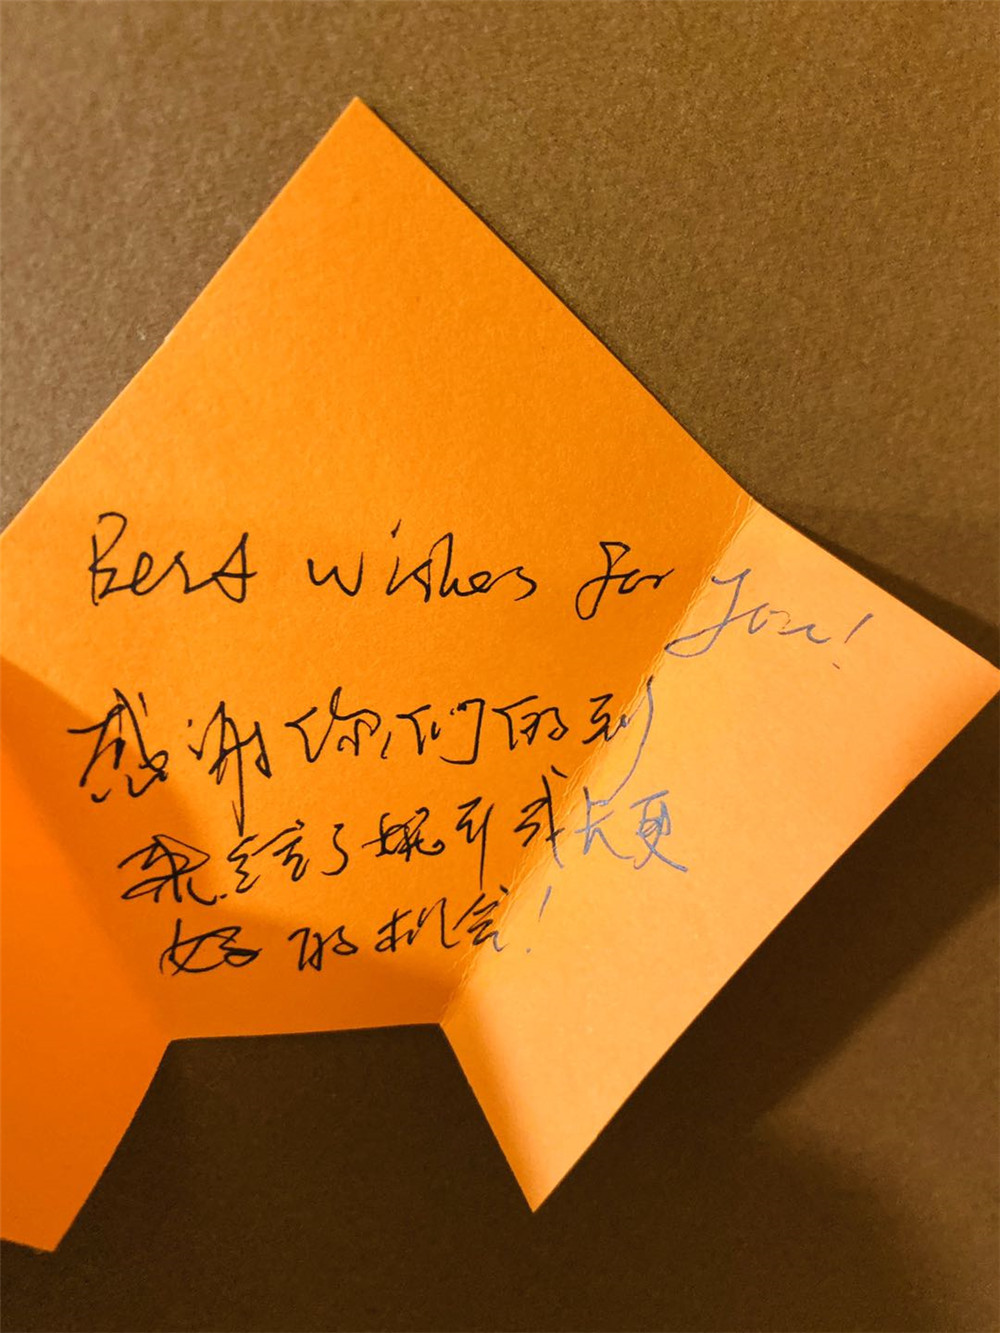 Best wishes for you!
感谢你们的到
来,给了妮可成长更
好的机会!